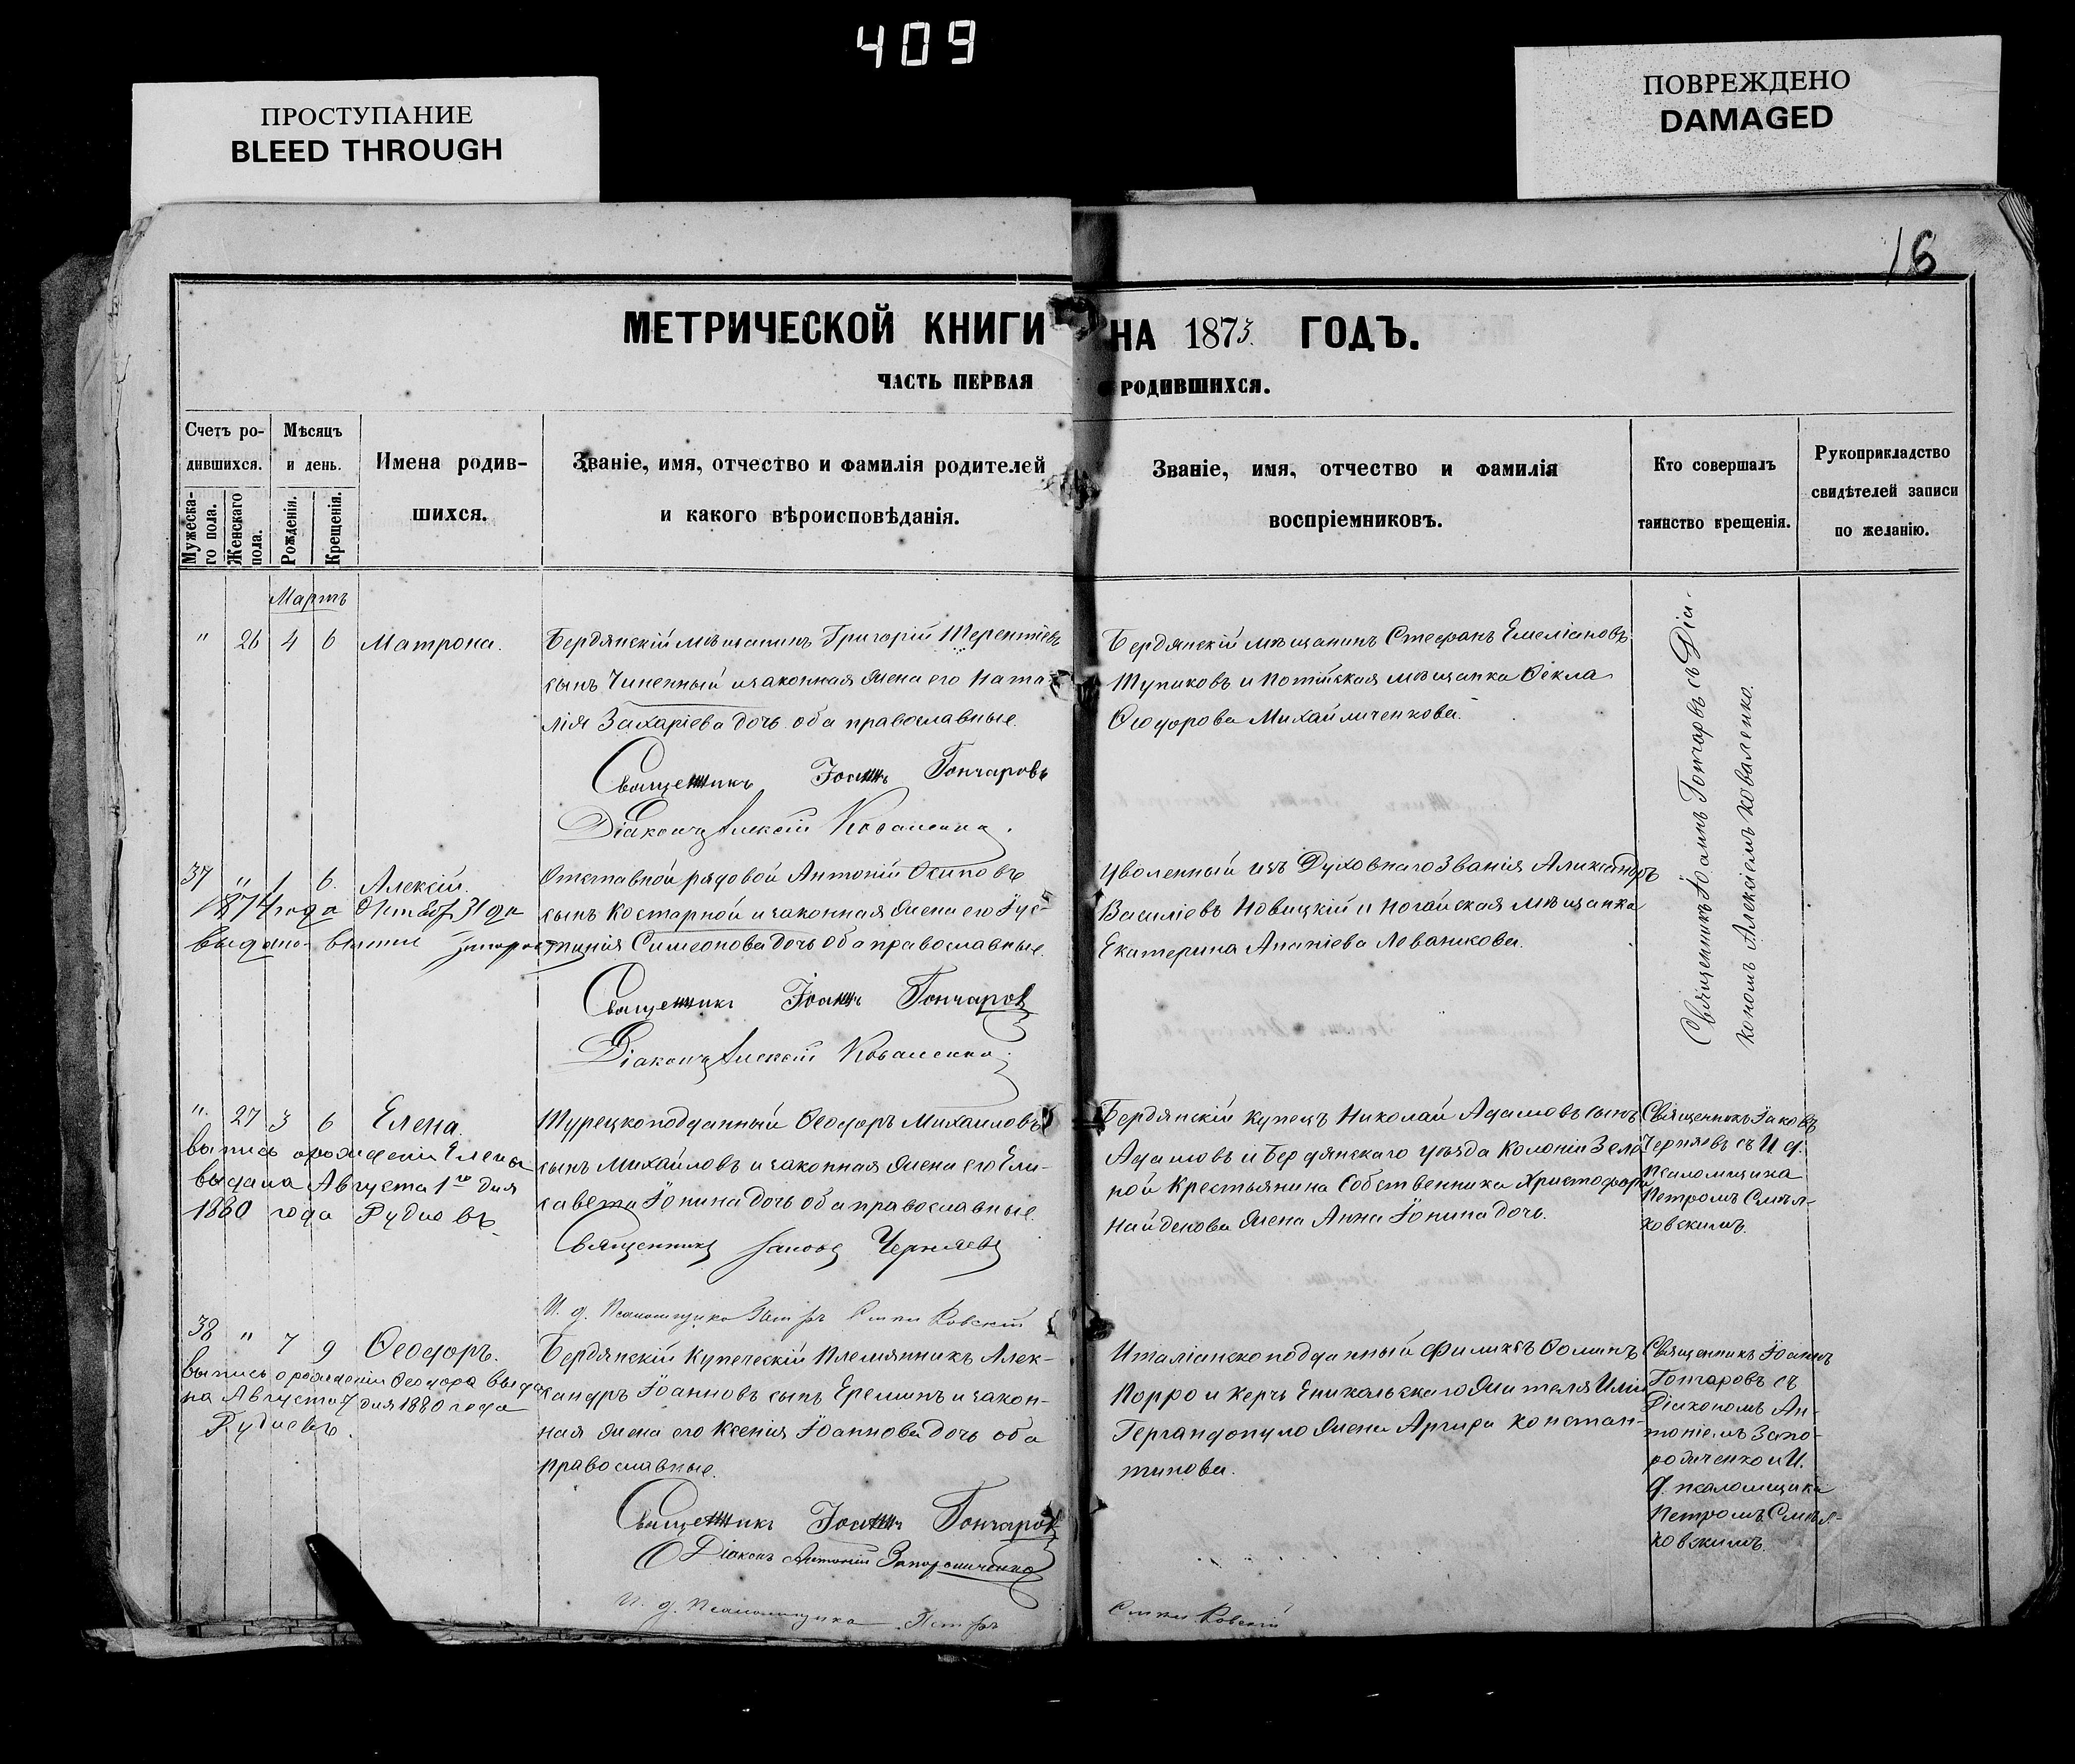 409
ПРОСТУПАНИЕ
BLEED THROUGH
ПОВРЕЖДЕНО
DAMAGED
16
МЕТРИЧЕСКОЙ КНИГИ НА 1873 ГОДЪ.
ЧАСТЬ ПЕРВАЯ О РОДИВШИХСЯ.
Счетъ ро-
дившихся.
Мужеска-
го пола.
Женскаго
пола.
Мѣсяцъ
и день.
Рожденія.
Крещенія.
Имена родив-
шихся.
Званіе, имя, отчество и фамилія родителей
и какого вѣроисповѣданія.
Званіе, имя, отчество и фамилія
воспріемниковъ.
Кто совершалъ
таинство крещенія.
Рукоприкладство
свидѣтелей записи
по желанію.
Мартъ
" 26 4 6 Матрона.
Бердянскій мѣщанинъ Григорій Терентіевъ
сынъ Чиненный и законная жена его Ната-
лія Захаріева дочь оба православные.
Священникъ Іоаннъ Гончаровъ
Діаконъ Алексій Коваленко.
Бердянскій мѣщанинъ Стефанъ Емеліановъ
Тупиковъ и Ногайская мѣщанка Ѳекла
Ѳеодорова Михайличенкова.
Священникъ Іоаннъ Гончаровъ съ Діа-
кономъ Алексіемъ Коваленко.
37 " 1 6. Алексій.
1874 года Октября 31 дня
выдано
Отставной рядовой Антоній Осиповъ
сынъ Костарной и законная жена его Іус-
тинія Симеонова дочь оба православные.
Священникъ Іоаннъ Гончаровъ
Діаконъ Алексій Коваленко.
Уволенный изъ Духовнаго Званія Александръ
Василіевъ Новицкій и Ногайская мѣщанка
Екатерина Ананіева Леваникова.
". 27 3 6 Елена.
выпись о рожденіи Елены
выдана Августа 1го дня
1880 года Рудневъ
Турецкоподданный Ѳеодоръ Михаиловъ
сынъ Михайловъ и законная жена его Ели-
савета Іонина дочь оба православные.
Священникъ Іаковъ Черняевъ
И. д. Псаломщика Петръ
Бердянскій купецъ Николай Адамовъ сынъ
Адамовъ и Бердянскаго уѣзда Колоніи Зеле-
ной Крестьянина Собственника Христофора
Найденова жена Анна Іонина дочь.
Священникъ Іаковъ
Черняевъ съ И. д.
Псаломщика
Петромъ Смѣл-
ковскимъ.
38 " 7 9 Ѳеодоръ.
выпись о рожденіи Ѳеодора выда-
на Августа 7 дня 1880 года
Рудневъ.
Бердянскій Купеческій Племянникъ Алек-
сандръ Іоанновъ сынъ Ереминъ и закон-
ная жена его Ксенія Іоаннова дочь оба
православные.
Священникъ Іоаннъ Гончаровъ
Діаконъ Антоній Запорожченко
И. д. Псаломщика Петръ
Италіанскоподданный Филиксъ Ѳоминъ
Порро и Керчь Еникольскаго жителя Иліи
Гергандопуло жена Аргира Констан-
тинова.
Священникъ Іоаннъ
Гончаровъ съ
Діакономъ Ан-
тоніемъ Запо-
рожченко и И.
д. псаломщика
Петромъ Смѣл-
ковскимъ.